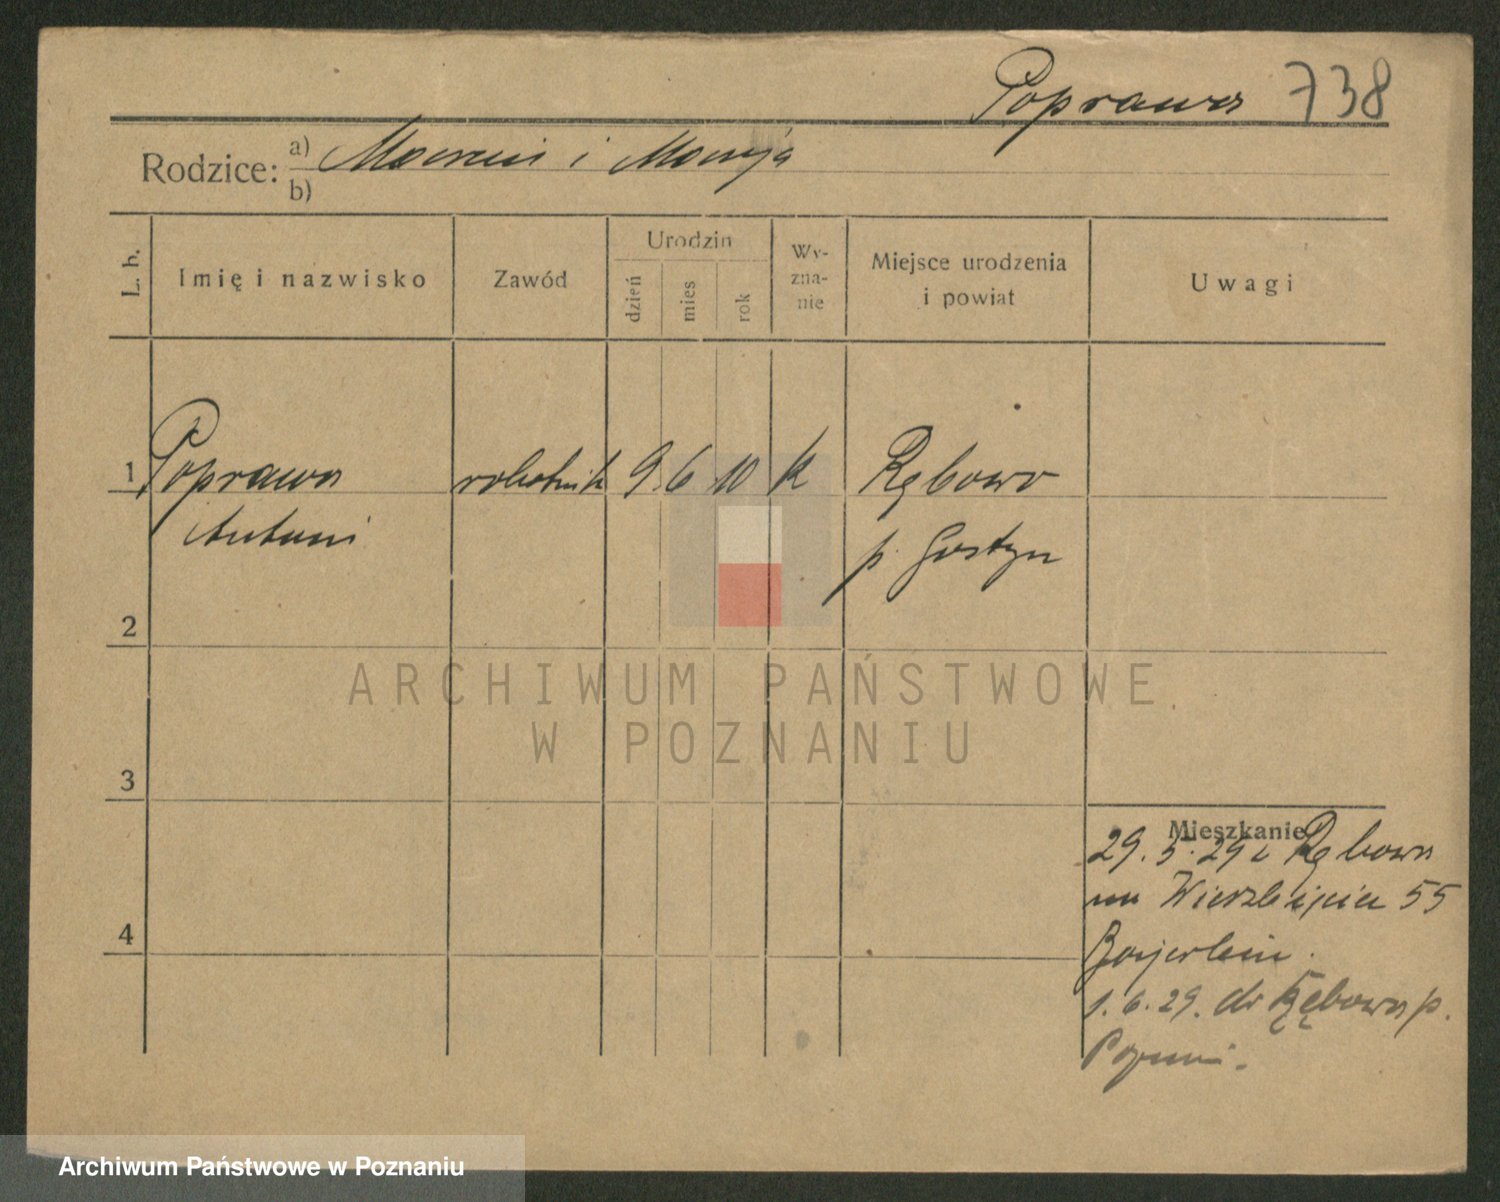 Poprawa 738
Rodzice: a) Marcin i Maryja
b)
L. b.
Imię i nazwisko
Zawód
Urodzin
dzień
mies
rok
Wy-
zna-
nie
Miejsce urodzenia
i powiat
Uwagi
1 Poprawa robotnik 9. 6 10 k Rębowo
Antoni p. Gostyn
2
3
4
Mieszkanie
29. 5. 29 z Rębowa
na Wierzbięcice 55
Bajerlein.
1. 6. 29. do Rębowa p.
ARCHIWUM PAŃSTWOWE
W POZNANIU
Archiwum Państwowe w Poznaniu